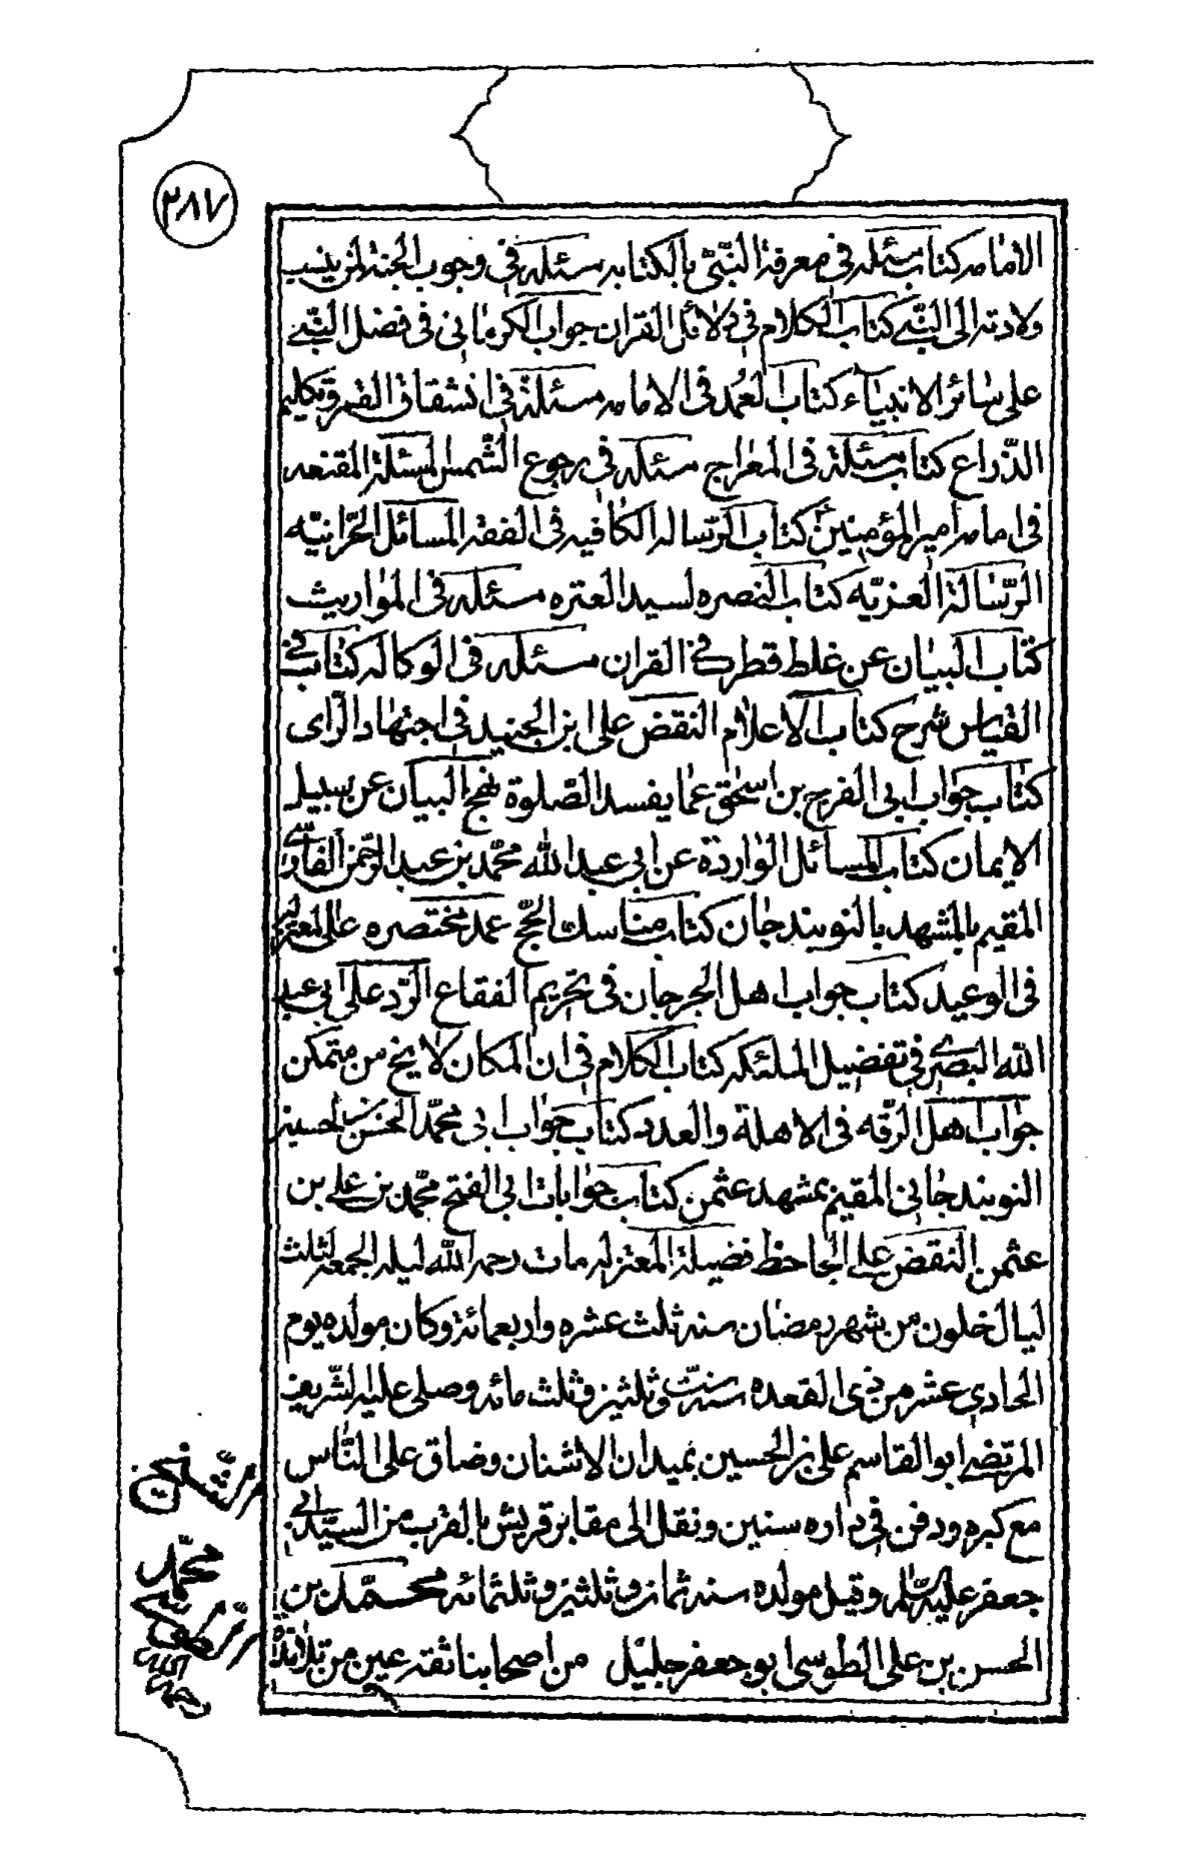 ٢٨٧
الامامه كتاب مسئله في معرفة النبيّ بالكتابه مسئله في وجوب الجنة لمن ينسب
ولادته الى النبيّ كتاب الكلام في دلائل القران جواب الكرماني في فضل النبيّ
على سائر الانبيآء كتاب العُمد في الامامه مسئلة في انشقاق القمر وتكليم
الذّراع كتاب مسئلة في المعراج مسئله في رجوع الشّمس المسئلة المقنعه
في امامه امير المؤمنينؑ كتاب الرّساله الكافيه في الفقه المسائل الحرّانيّه
الرّسالة العزيّه كتاب النصره لسيد العتره مسئله في المواريث
كتاب البيان عن غلط قطرب في القران مسئله في الوكاله كتاب في
القياس شرح كتاب الاعلام النقض على ابن الجنيد في اجتهاد الرّاى
كتاب جواب ابى الفرج بن اسحٰق عما يفسد الصّلوة نهج البيان عن سبيل
الايمان كتاب المسائل الواردة عن ابي عبد الله محمّد بن عبد الرّحمن الفارسي
المقيم بالمشهد بالنوبندجان كتاب مناسك الحجّ عمد مختصره على المعتزله
في الوعيد كتاب جواب اهل الجرجان في تحريم الفقاع الرّد على ابي عبد
الله البصري في تفضيل الملئكه كتاب الكلام في ان المكان لا يخ من متمكن
جواب اهل الرّقه في الاهلة والعدد كتاب جواب ابى محمّد الحسن بن الحسين
النوبندجاني المقيم بمشهد عثمن كتاب جوابات ابى الفتح محمّد بن علي بن
عثمن النقض على الجاحظ فضيلة المعتزله مات رحمه الله ليله الجمعه لثلث
ليال خلون من شهر رمضان سنه ثلث عشره واربعمائة وكان مولده يوم
الحادي عشر من ذي القعده سنه ستّ وثلثين وثلث مائه وصلى عليه الشّريف
المرتضى ابو القاسم على بن الحسين بميدان الاشنان وضاق على النّاس
مع كبره ودفن في داره سنين ونقل الى مقابر قريش بالقرب من السيّد ابي
جعفر عليه السّلم وقيل مولده سنه ثمان وثلثين وثلثمائه محمّد بن
الحسن بن على الطوسى ابو جعفر جليل من اصحابنا ثقه عين من تلامذة
محمّد
رحمه الله